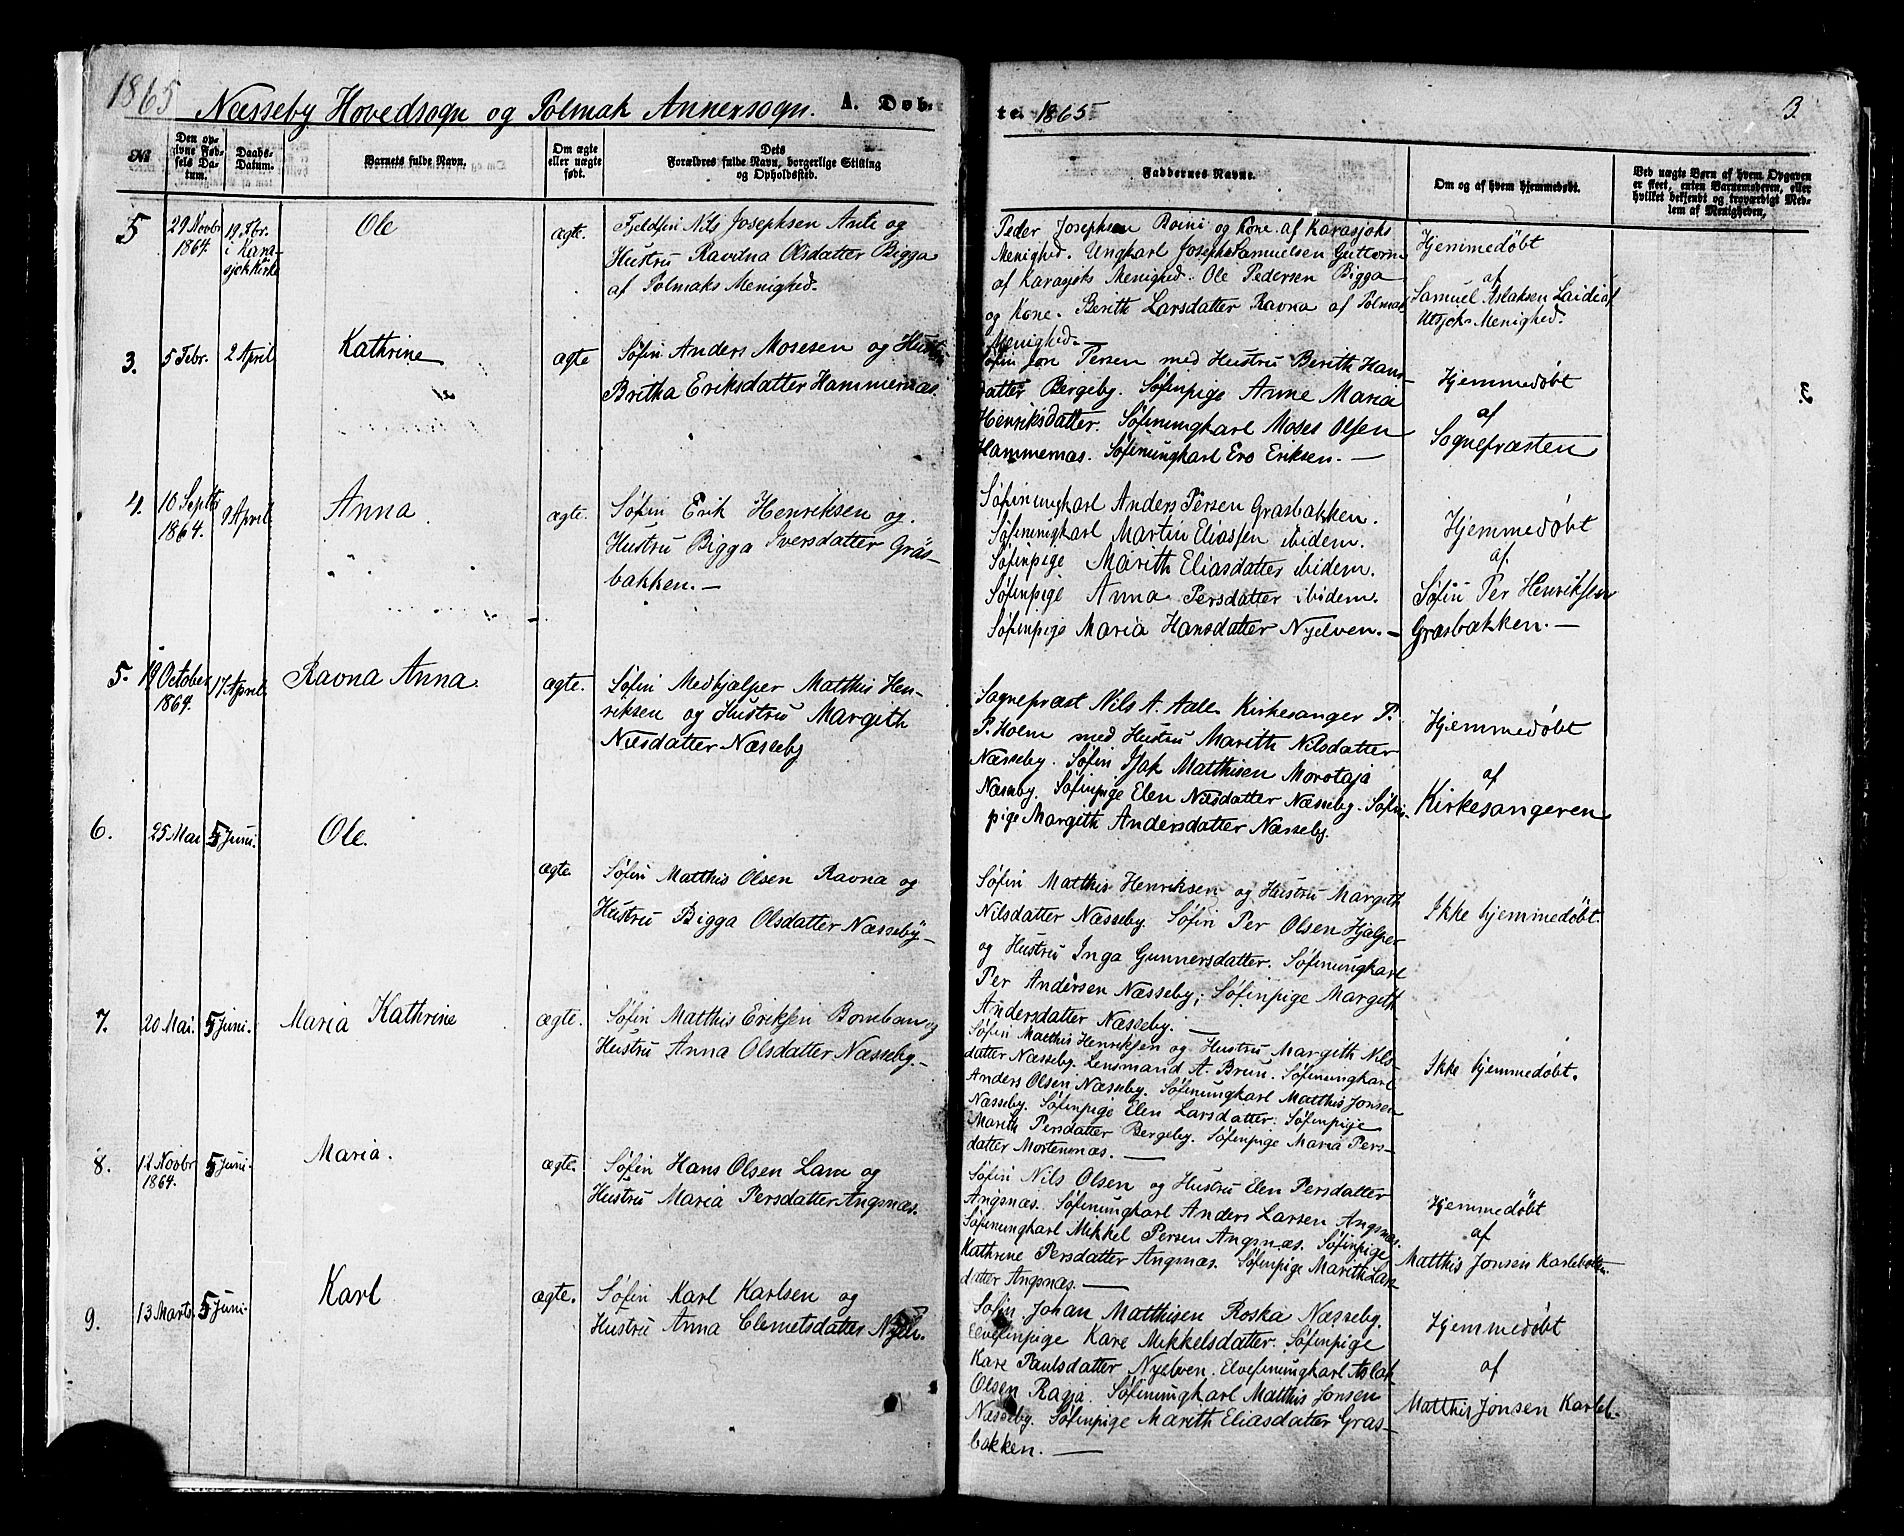 1865 Næsseby Hovedsogn og Polmak Annexsogn. A. Døb-
te. 1865 3.
No
Den op-
ivne Fød-
sels Da-
tum.
Daabs-
Datum.
Barnets fulde Navn.
Om ægte
eller uægte
født.
Dets
Forældres fulde Navn, borgerlige Stilling
og Opholdssted.
Faddernes Navne.
Om og af hvem hjemmedøbt.
Ved uægte Børn af hvem Opgaven
er skeet, enten Barnemoderen, eller
hvilket bekjendt og troværdigt Med-
lem af Menigheden.
5
29 Novbr
1864
19 Fbr.
i Kara-
sjok Kirke
Ole
ægte.
Fjeldfin Nils Josephsen Anti og
Hustru Ravdna Olsdatter Bigga
af Polmaks Menighed.
Peder Josephsen Boini og Kone af Karasjoks
Menighed. Ungkarl Joseph Samuelsen Guttorm
af Karasjoks Menighed. Ole Pedersen Bigga
og Kone. Berith Larsdatter Ravna af Polmak
Menighed.
Hjemmedøbt
af
Samuel Aslaksen Laidi af
Utsjok Menighed.
3.
5 Febr.
2 April
Kathrine
ægte
Søfin Anders Mosesen og Hustr
Britha Eriksdatter Hammernæs.
Søfin Jon Persen med Hustru Berith Hans-
datter Bergeby. Søfinpige Anne Maria
Henriksdatter. Søfinungkarl Moses Olsen
Hammernæs. Søfinungkarl Ero Eriksen. —
Hjemmedøbt
af
Sognepræsten
3.
4.
10 Septbr
1864.
9 April
Anna.
ægte.
Søfin Erik Henriksen og
Hustru Bigga Iversdatter Græs-
bakken. —
Søfinungkarl Anders Persen Græsbakken.
Søfinungkarl Martin Eliassen ibidem.
Søfinpige Marith Eliasdatter ibidem.
Søfinpige Anna Persdatter ibidem.
Søfinpige Maria Hansdatter Nyelven. —
Hjemmedøbt
af
Søfin Per Henriksen
Græsbakken. —
5.
19 October
1864.
17 April.
Ravna Anna.
ægte.
Søfin Medhjælper Matthis Hen-
riksen og Hustru Margith
Nilsdatter Næsseby
Sognepræst Nils A. Aale. Kirkesanger P.
P. Holm med Hustru Marith Nilsdatter
Næsseby. Søfin Isak Matthisen Morotaja
Næsseby. Søfinpige Elen Nilsdatter Næsseby. Søfin-
pige Margith Andersdatter Næsseby.
Hjemmedøbt
af
Kirkesangeren
6.
25 Mai
5 Juni.
Ole.
ægte.
Søfin Matthis Olsen Ravna og
Hustru Bigga Olsdatter Næsseby —
Søfin Matthis Henriksen og Hustru Margith
Nilsdatter Næsseby. Søfin Per Olsen Hjelper
og Hustru Inga Gunnersdatter. Søfinungkarl
Per Andersen Næsseby; Søfinpige Margith
Andersdatter Næsseby. —
Ikke hjemmedøbt.
7.
20 Mai.
5 Juni.
Maria Kathrine
ægte.
Søfin Matthis Eriksen Bomban og
Hustru Anna Olsdatter Næsseby. —
Søfin Matthis Henriksen og Hustru Margith Nils-
datter Næsseby. Lensmand A. Brun. Søfinungkarl
Anders Olsen Næsseby. Søfinungkarl Matthis Jonsen
Næsseby. Søfinpige Elen Larsdatter. Søfinpige
Marith Persdatter Bergeby. Søfinpige Maria Pers-
datter Mortensnæs. —
Ikke hjemmedøbt.
8.
12 Novbr
1864.
5 Juni.
Maria.
ægte.
Søfin Hans Olsen Lam og
Hustru Maria Persdatter Angsnæs.
Søfin Nils Olsen og Hustru Elen Persdatter
Angsnæs. Søfinungkarl Anders Larsen Angsnæs.
Søfinungkarl Mikkel Persen Angsnæs. Søfinpige
Kathrine Persdatter Angsnæs. Søfinpige Marith Lars-
datter Angsnæs. —
Hjemmedøbt
af
Matthis Jonsen Karlebotn.
9.
13 Marts
5 Juni.
Karl
ægte.
Søfin Karl Karlsen og
Hustru Anna Clemetsdatter Nyelv.
Søfin Johan Matthisen Roska Næsseby.
Elvefinpige Kare Mikkelsdatter. Søfinpige
Kare Paulsdatter Nyelven. Elvefinungkarl Aslak
Olsen Ragja. Søfinungkarl Matthis Jonsen
Næsseby. Søfinpige Marith Eliasdatter Græs-
bakken. —
Hjemmedøbt
af
Matthis Jonsen Karleb.